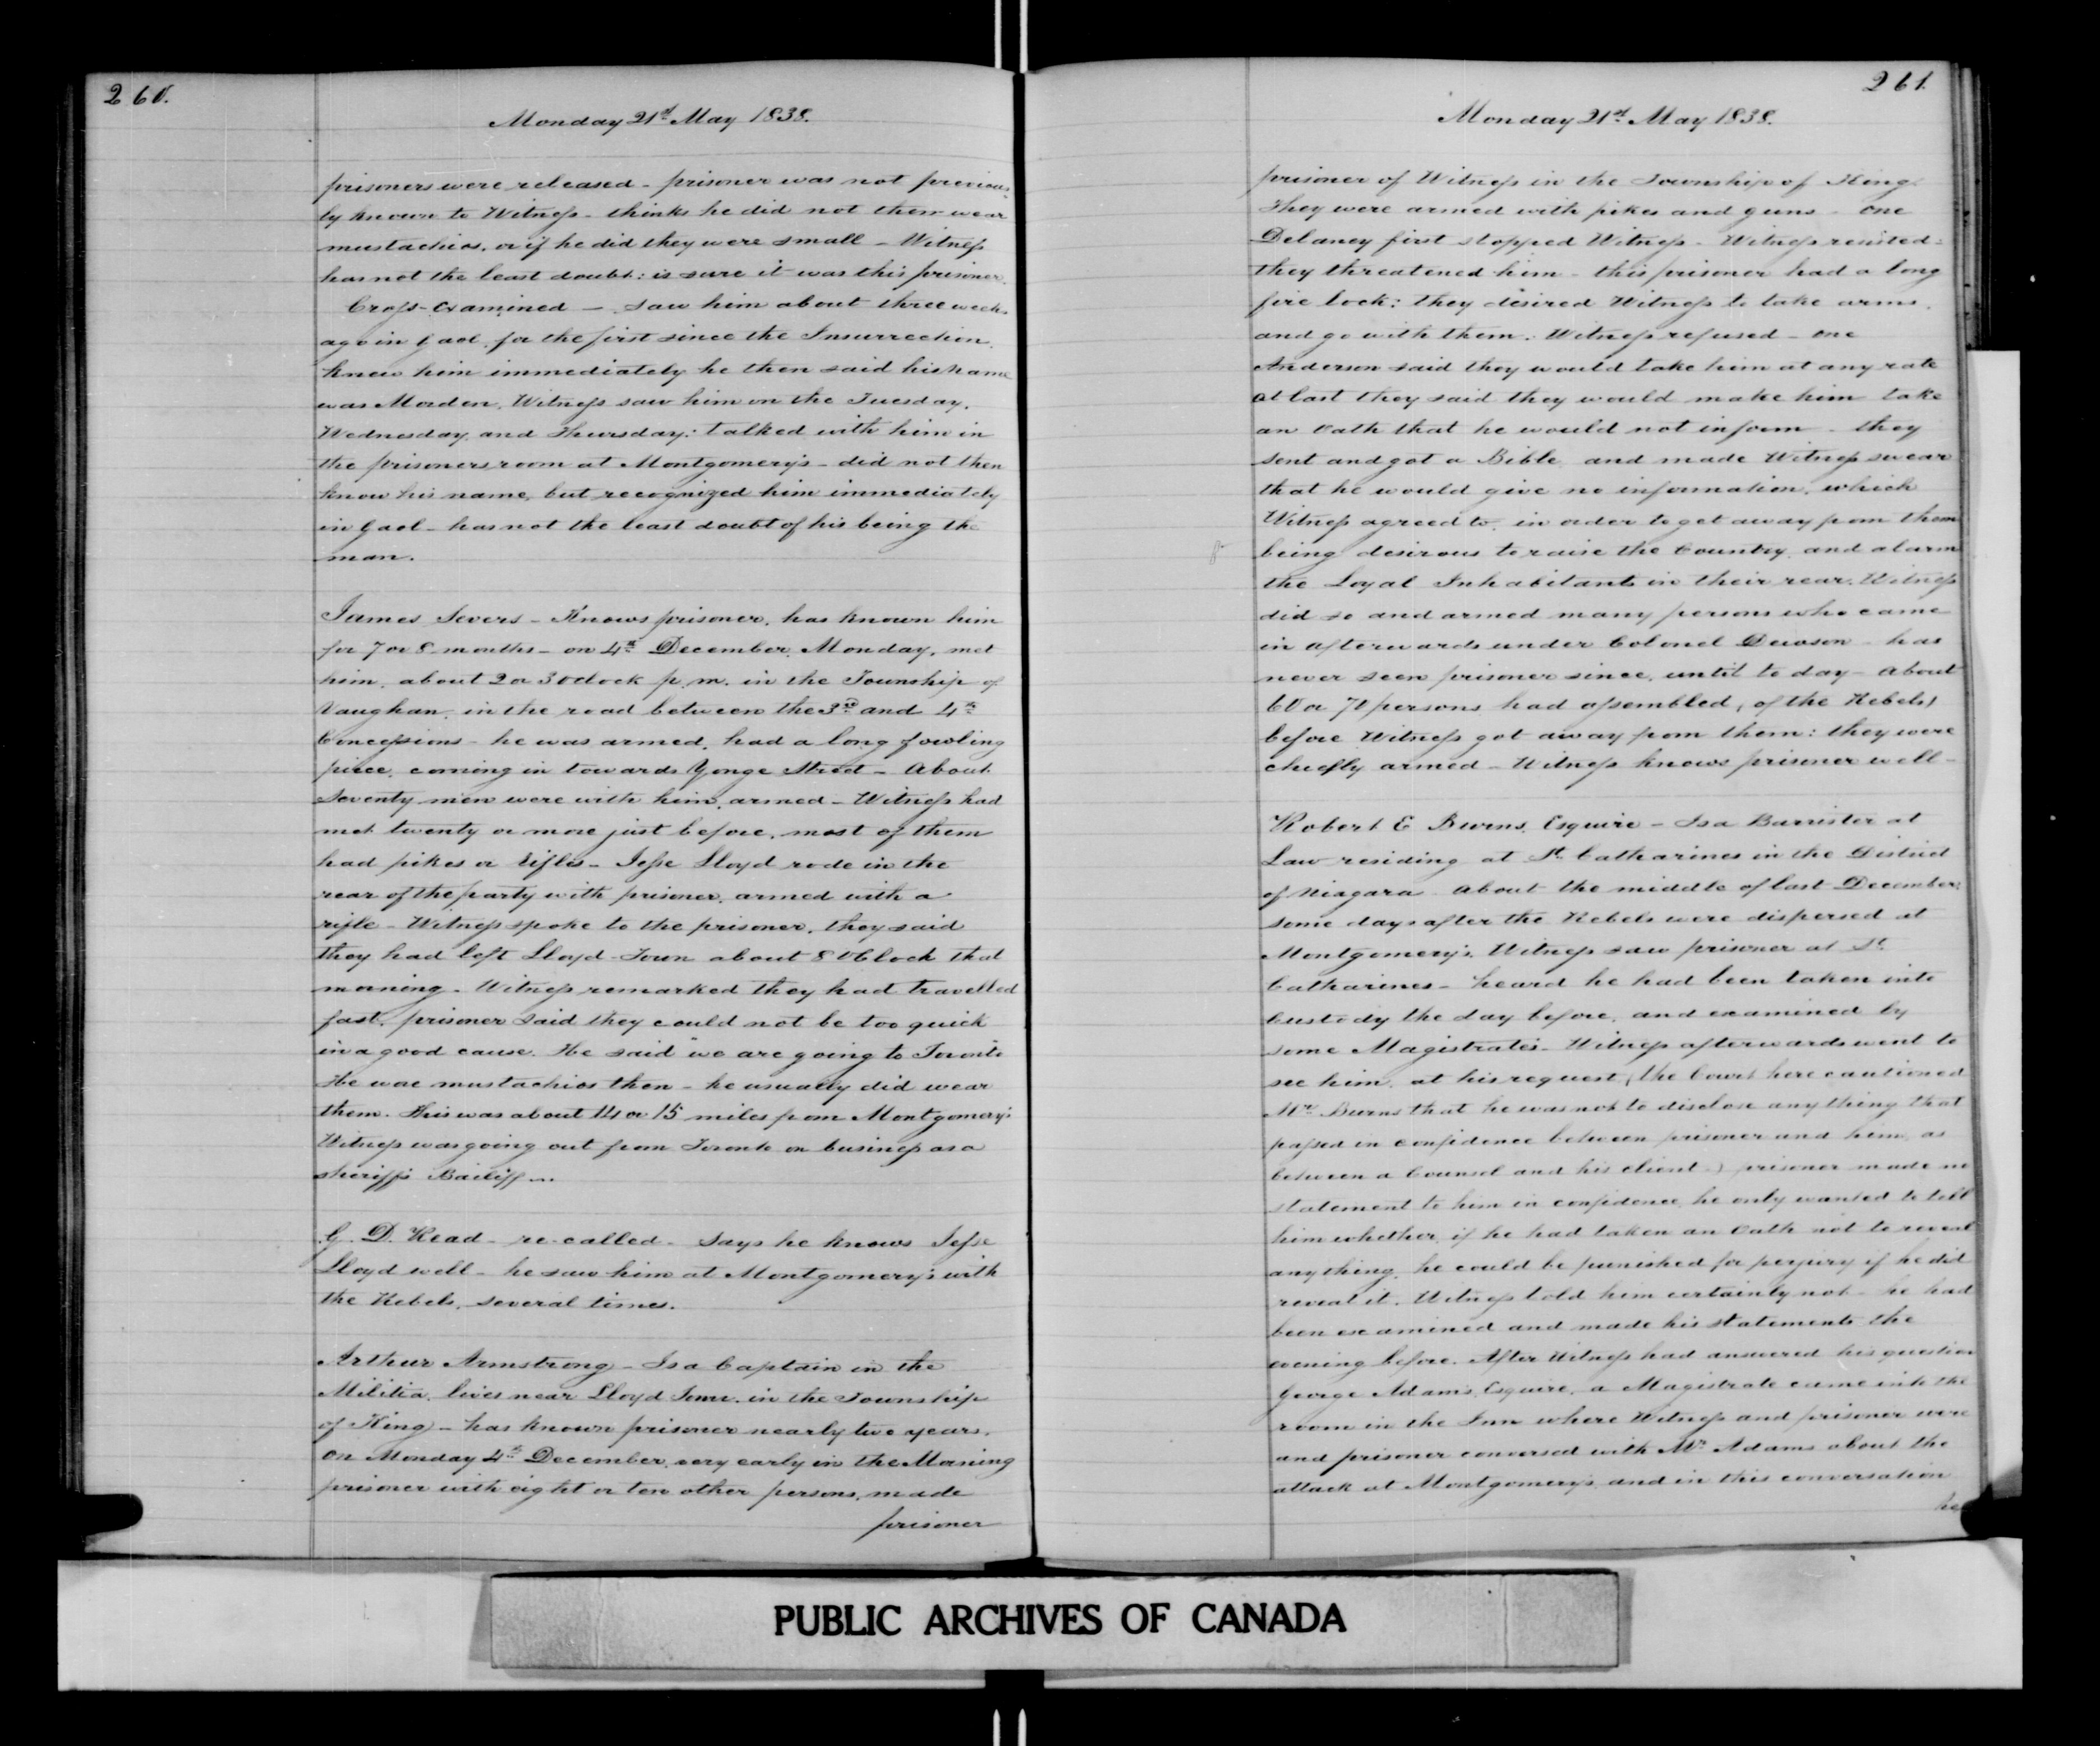 260.
Monday 21st May 1838.
prisoners were released - prisoner was not previous-
ly known to Witness - thinks he did not then wear
mustachios, or if he did they were small - Witness
has not the least doubt: is sure it was this prisoner.
Cross-examined - saw him about three weeks
ago in Gaol, for the first since the Insurrection.
knew him immediately he then said his name
was Morden. Witness saw him on the Tuesday,
Wednesday, and Thursday: talked with him in
the prisoners room at Montgomery's - did not then
know his name, but recognized him immediately
in Gaol - has not the least doubt of his being the
man.
James Severs - Knows prisoner, has known him
for 7 or 8 months - on 4th December, Monday, met
him, about 2 or 3 oclock p.m. in the Township of
Vaughan, in the road between the 3rd and 4th
Concessions - he was armed, had a long fowling
piece, coming in towards Yonge Street - About
seventy men were with him, armed - Witness had
met twenty or more just before, most of them
had pikes or rifles - Jesse Lloyd rode in the
rear of the party with prisoner, armed with a
rifle - Witness spoke to the prisoner, they said
they had left Lloyd-Town about 8 OClock that
morning - Witness remarked they had travelled
fast, prisoner said they could not be too quick
in a good cause. He said "we are going to Toronto"
He wore mustachios then - he usually did wear
them. This was about 14 or 15 miles from Montgomery's
Witness was going out from Toronto on business as a
sheriff's Bailiff
G. D. Read - re-called - Says he knows Jesse
Lloyd well - he saw him at Montgomery's with
the Rebels, several times.
Arthur Armstrong - Is a Captain in the
Militia, lives near Lloyd Town, in the Township
of King - has known prisoner nearly two years.
On Monday 4th December, very early in the Morning
prisoner with eight or ten other persons, made
prisoner
261.
Monday 21st May 1838.
prisoner of Witness in the Township of King.
They were armed with pikes and guns - One
Delaney first stopped Witness - Witness resisted:
they threatened him - this prisoner had a long
fire lock: they desired Witness to take arms,
and go with them. Witness refused - one
Anderson said they would take him at any rate
at last they said they would make him take
an Oath that he would not inform - they
sent and got a Bible, and made Witness swear
that he would give no information, which
Witness agreed to, in order to get away from them
being desirous to raise the Country, and alarm
the Loyal Inhabitants in their rear. Witness
did so and armed many persons who came
in afterwards under Colonel Dewson - has
never seen prisoner since, until to day - About
60 or 70 persons had assembled, (of the Rebels)
before Witness got away from them: they were
chiefly armed - Witness knows prisoner well -
Robert E Burns, Esquire - Is a Barrister at
Law residing at St. Catharines in the District
of Niagara - About the middle of last December,
some days after the Rebels were dispersed at
Montgomery's, Witness saw prisoner at St.
Catharines - heard he had been taken into
Custody the day before, and examined by
some Magistrates - Witness afterwards went to
see him, at his request (the Court here cautioned
Mr. Burns that he was not to disclose any thing that
passed in confidence between prisoner and him, as
between a Counsel and his client -) prisoner made no
statement to him in confidence, he only wanted to tell
him whether, if he had taken an Oath not to reveal
any thing, he could be punished for perjury if he did
reveal it. Witness told him certainly not - he had
been examined and made his statements the
evening before. After Witness had answered his question
George Adams, Esquire, a Magistrate came into the
room in the Inn where Witness and prisoner were
and prisoner conversed with Mr. Adams about the
attack at Montgomery's, and in this conversation
he
PUBLIC ARCHIVES OF CANADA